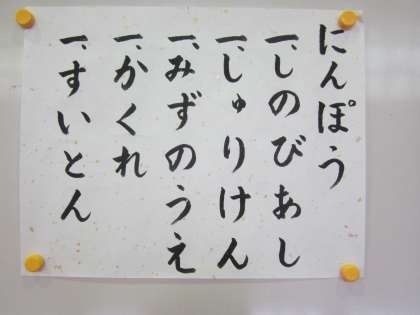 にんぽう
一、しのびあし
一、しゅりけん
一、みずのうえ
一、かくれ
一、すいとん